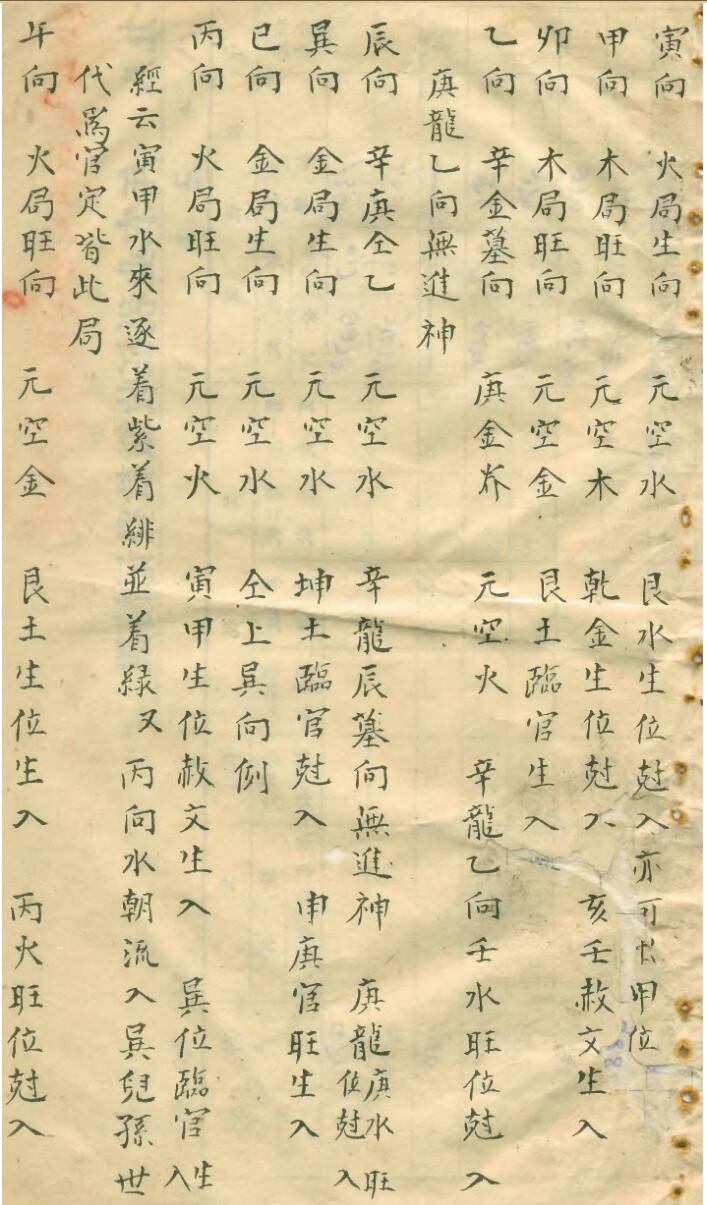 寅向 火局生向 元空水 艮水生位尅入亦可 甲位
甲向 木局旺向 元空木 乾金生位尅入 亥壬赦文生入
卯向 木局旺向 元空金 艮土臨官生入
乙向 辛金墓向 庚金养 元空火 辛龍乙向壬水旺位尅入
庚龍乙向無進神
辰向 辛庚仝乙 元空水 辛龍辰墓向無進神 庚龍庚水旺位尅入
巽向 金局生向 元空水 坤土臨官尅入 申庚官旺生入
巳向 金局生向 元空水 仝上巽向例
丙向 火局旺向 元空火 寅甲生位赦文生入 巽位臨官生入
經云寅甲水來逐着紫着緋並着緑又丙向水朝流入巽兒孫世
代爲官定皆此局
午向 火局旺向 元空金 艮土生位生入 丙火旺位尅入